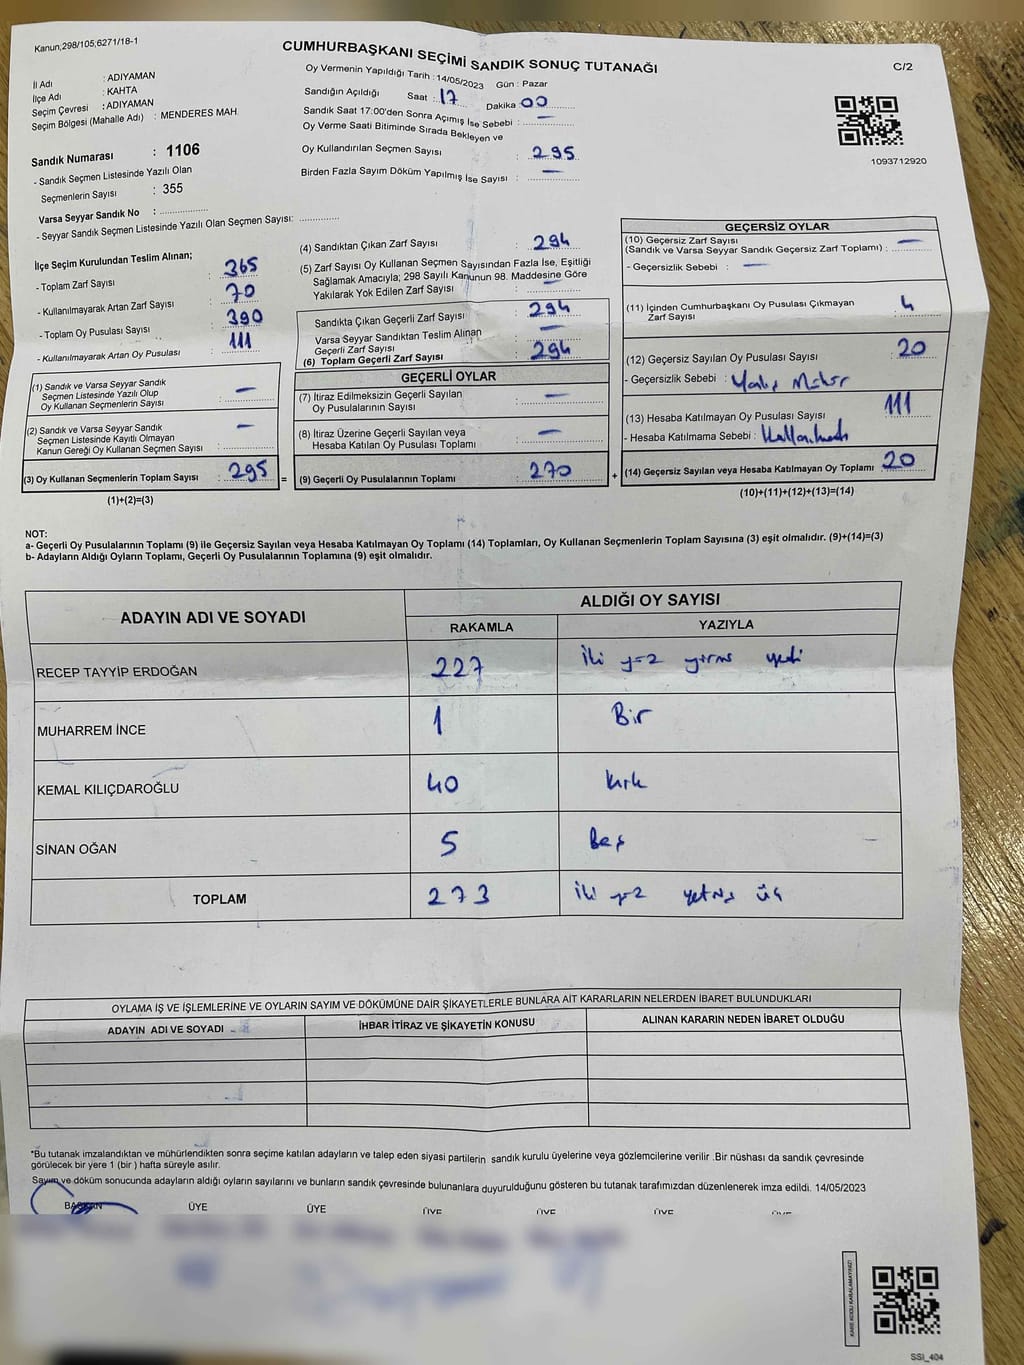 Kanun;298/105;6271/18-1
CUMHURBAŞKANI SEÇİMİ SANDIK SONUÇ TUTANAĞI
C/2
İl Adı : ADIYAMAN
İlçe Adı : KAHTA
Seçim Çevresi : ADIYAMAN
Seçim Bölgesi (Mahalle Adı) : MENDERES MAH.
Oy Vermenin Yapıldığı Tarih : 14/05/2023 Gün : Pazar
Sandığın Açıldığı Saat : 17 Dakika : 00
Sandık Saat 17:00'den Sonra Açımış İse Sebebi : —
Oy Verme Saati Bitiminde Sırada Bekleyen ve
Oy Kullandırılan Seçmen Sayısı : 295
Birden Fazla Sayım Döküm Yapılmış İse Sayısı : —
1093712920
Sandık Numarası : 1106
- Sandık Seçmen Listesinde Yazılı Olan
Seçmenlerin Sayısı : 355
Varsa Seyyar Sandık No : ..................
- Seyyar Sandık Seçmen Listesinde Yazılı Olan Seçmen Sayısı: ..............
İlçe Seçim Kurulundan Teslim Alınan;
- Toplam Zarf Sayısı : 365
- Kullanılmayarak Artan Zarf Sayısı : 70
- Toplam Oy Pusulası Sayısı : 390
- Kullanılmayarak Artan Oy Pusulası : 111
(1) Sandık ve Varsa Seyyar Sandık
Seçmen Listesinde Yazılı Olup
Oy Kullanan Seçmenlerin Sayısı : —
(2) Sandık ve Varsa Seyyar Sandık
Seçmen Listesinde Kayıtlı Olmayan
Kanun Gereği Oy Kullanan Seçmen Sayısı : —
(3) Oy Kullanan Seçmenlerin Toplam Sayısı : 295
(1)+(2)=(3)
(4) Sandıktan Çıkan Zarf Sayısı : 294
(5) Zarf Sayısı Oy Kullanan Seçmen Sayısından Fazla İse, Eşitliği
Sağlamak Amacıyla; 298 Sayılı Kanunun 98. Maddesine Göre
Yakılarak Yok Edilen Zarf Sayısı : —
Sandıkta Çıkan Geçerli Zarf Sayısı : 294
Varsa Seyyar Sandıktan Teslim Alınan
Geçerli Zarf Sayısı : —
(6) Toplam Geçerli Zarf Sayısı : 294
GEÇERLİ OYLAR
(7) İtiraz Edilmeksizin Geçerli Sayılan
Oy Pusulalarının Sayısı : —
(8) İtiraz Üzerine Geçerli Sayılan veya
Hesaba Katılan Oy Pusulası Toplamı : —
= (9) Geçerli Oy Pusulalarının Toplamı : 270 +
GEÇERSİZ OYLAR
(10) Geçersiz Zarf Sayısı
(Sandık ve Varsa Seyyar Sandık Geçersiz Zarf Toplamı) : —
- Geçersizlik Sebebi : —
(11) İçinden Cumhurbaşkanı Oy Pusulası Çıkmayan
Zarf Sayısı : 4
(12) Geçersiz Sayılan Oy Pusulası Sayısı : 20
- Geçersizlik Sebebi : Yanlış Mühür
(13) Hesaba Katılmayan Oy Pusulası Sayısı : 111
- Hesaba Katılmama Sebebi : Kullanılmadı
(14) Geçersiz Sayılan veya Hesaba Katılmayan Oy Toplamı : 20
(10)+(11)+(12)+(13)=(14)
NOT:
a- Geçerli Oy Pusulalarının Toplamı (9) ile Geçersiz Sayılan veya Hesaba Katılmayan Oy Toplamı (14) Toplamları, Oy Kullanan Seçmenlerin Toplam Sayısına (3) eşit olmalıdır. (9)+(14)=(3)
b- Adayların Aldığı Oyların Toplamı, Geçerli Oy Pusulalarının Toplamına (9) eşit olmalıdır.
ADAYIN ADI VE SOYADI
ALDIĞI OY SAYISI
RAKAMLA YAZIYLA
RECEP TAYYİP ERDOĞAN 227 iki yüz yirmi yedi
MUHARREM İNCE 1 Bir
KEMAL KILIÇDAROĞLU 40 kırk
SİNAN OĞAN 5 Beş
TOPLAM 273 iki yüz yetmiş üç
OYLAMA İŞ VE İŞLEMLERİNE VE OYLARIN SAYIM VE DÖKÜMÜNE DAİR ŞİKAYETLERLE BUNLARA AİT KARARLARIN NELERDEN İBARET BULUNDUKLARI
ADAYIN ADI VE SOYADI İHBAR İTİRAZ VE ŞİKAYETİN KONUSU ALINAN KARARIN NEDEN İBARET OLDUĞU
*Bu tutanak imzalandıktan ve mühürlendikten sonra seçime katılan adayların ve talep eden siyasi partilerin sandık kurulu üyelerine veya gözlemcilerine verilir .Bir nüshası da sandık çevresinde
görülecek bir yere 1 (bir ) hafta süreyle asılır.
Sayım ve döküm sonucunda adayların aldığı oyların sayılarını ve bunların sandık çevresinde bulunanlara duyurulduğunu gösteren bu tutanak tarafımızdan düzenlenerek imza edildi. 14/05/2023
BAŞKAN ÜYE ÜYE ÜYE ÜYE ÜYE ÜYE
KARE KODU KARALAMAYINIZ!
SSI_404